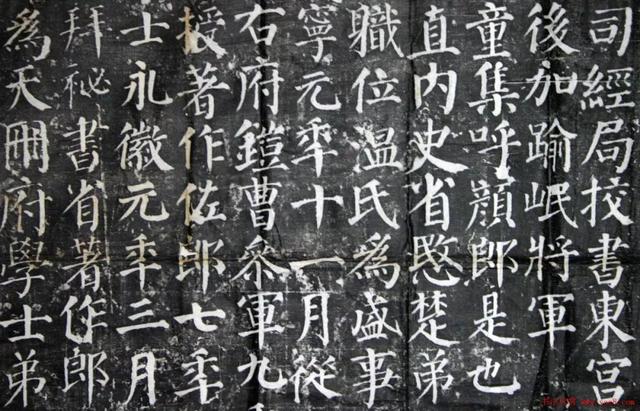 司經局挍書東宮
後加踰岷將軍
童集呼顏郎是也
直内史省愍楚弟
職位温氏爲盛事
寧元年十一月從
右府鎧曹叅軍九
授著作佐郎七年
士永徽元年三月
拜祕書省著作郎
爲天冊府學士弟